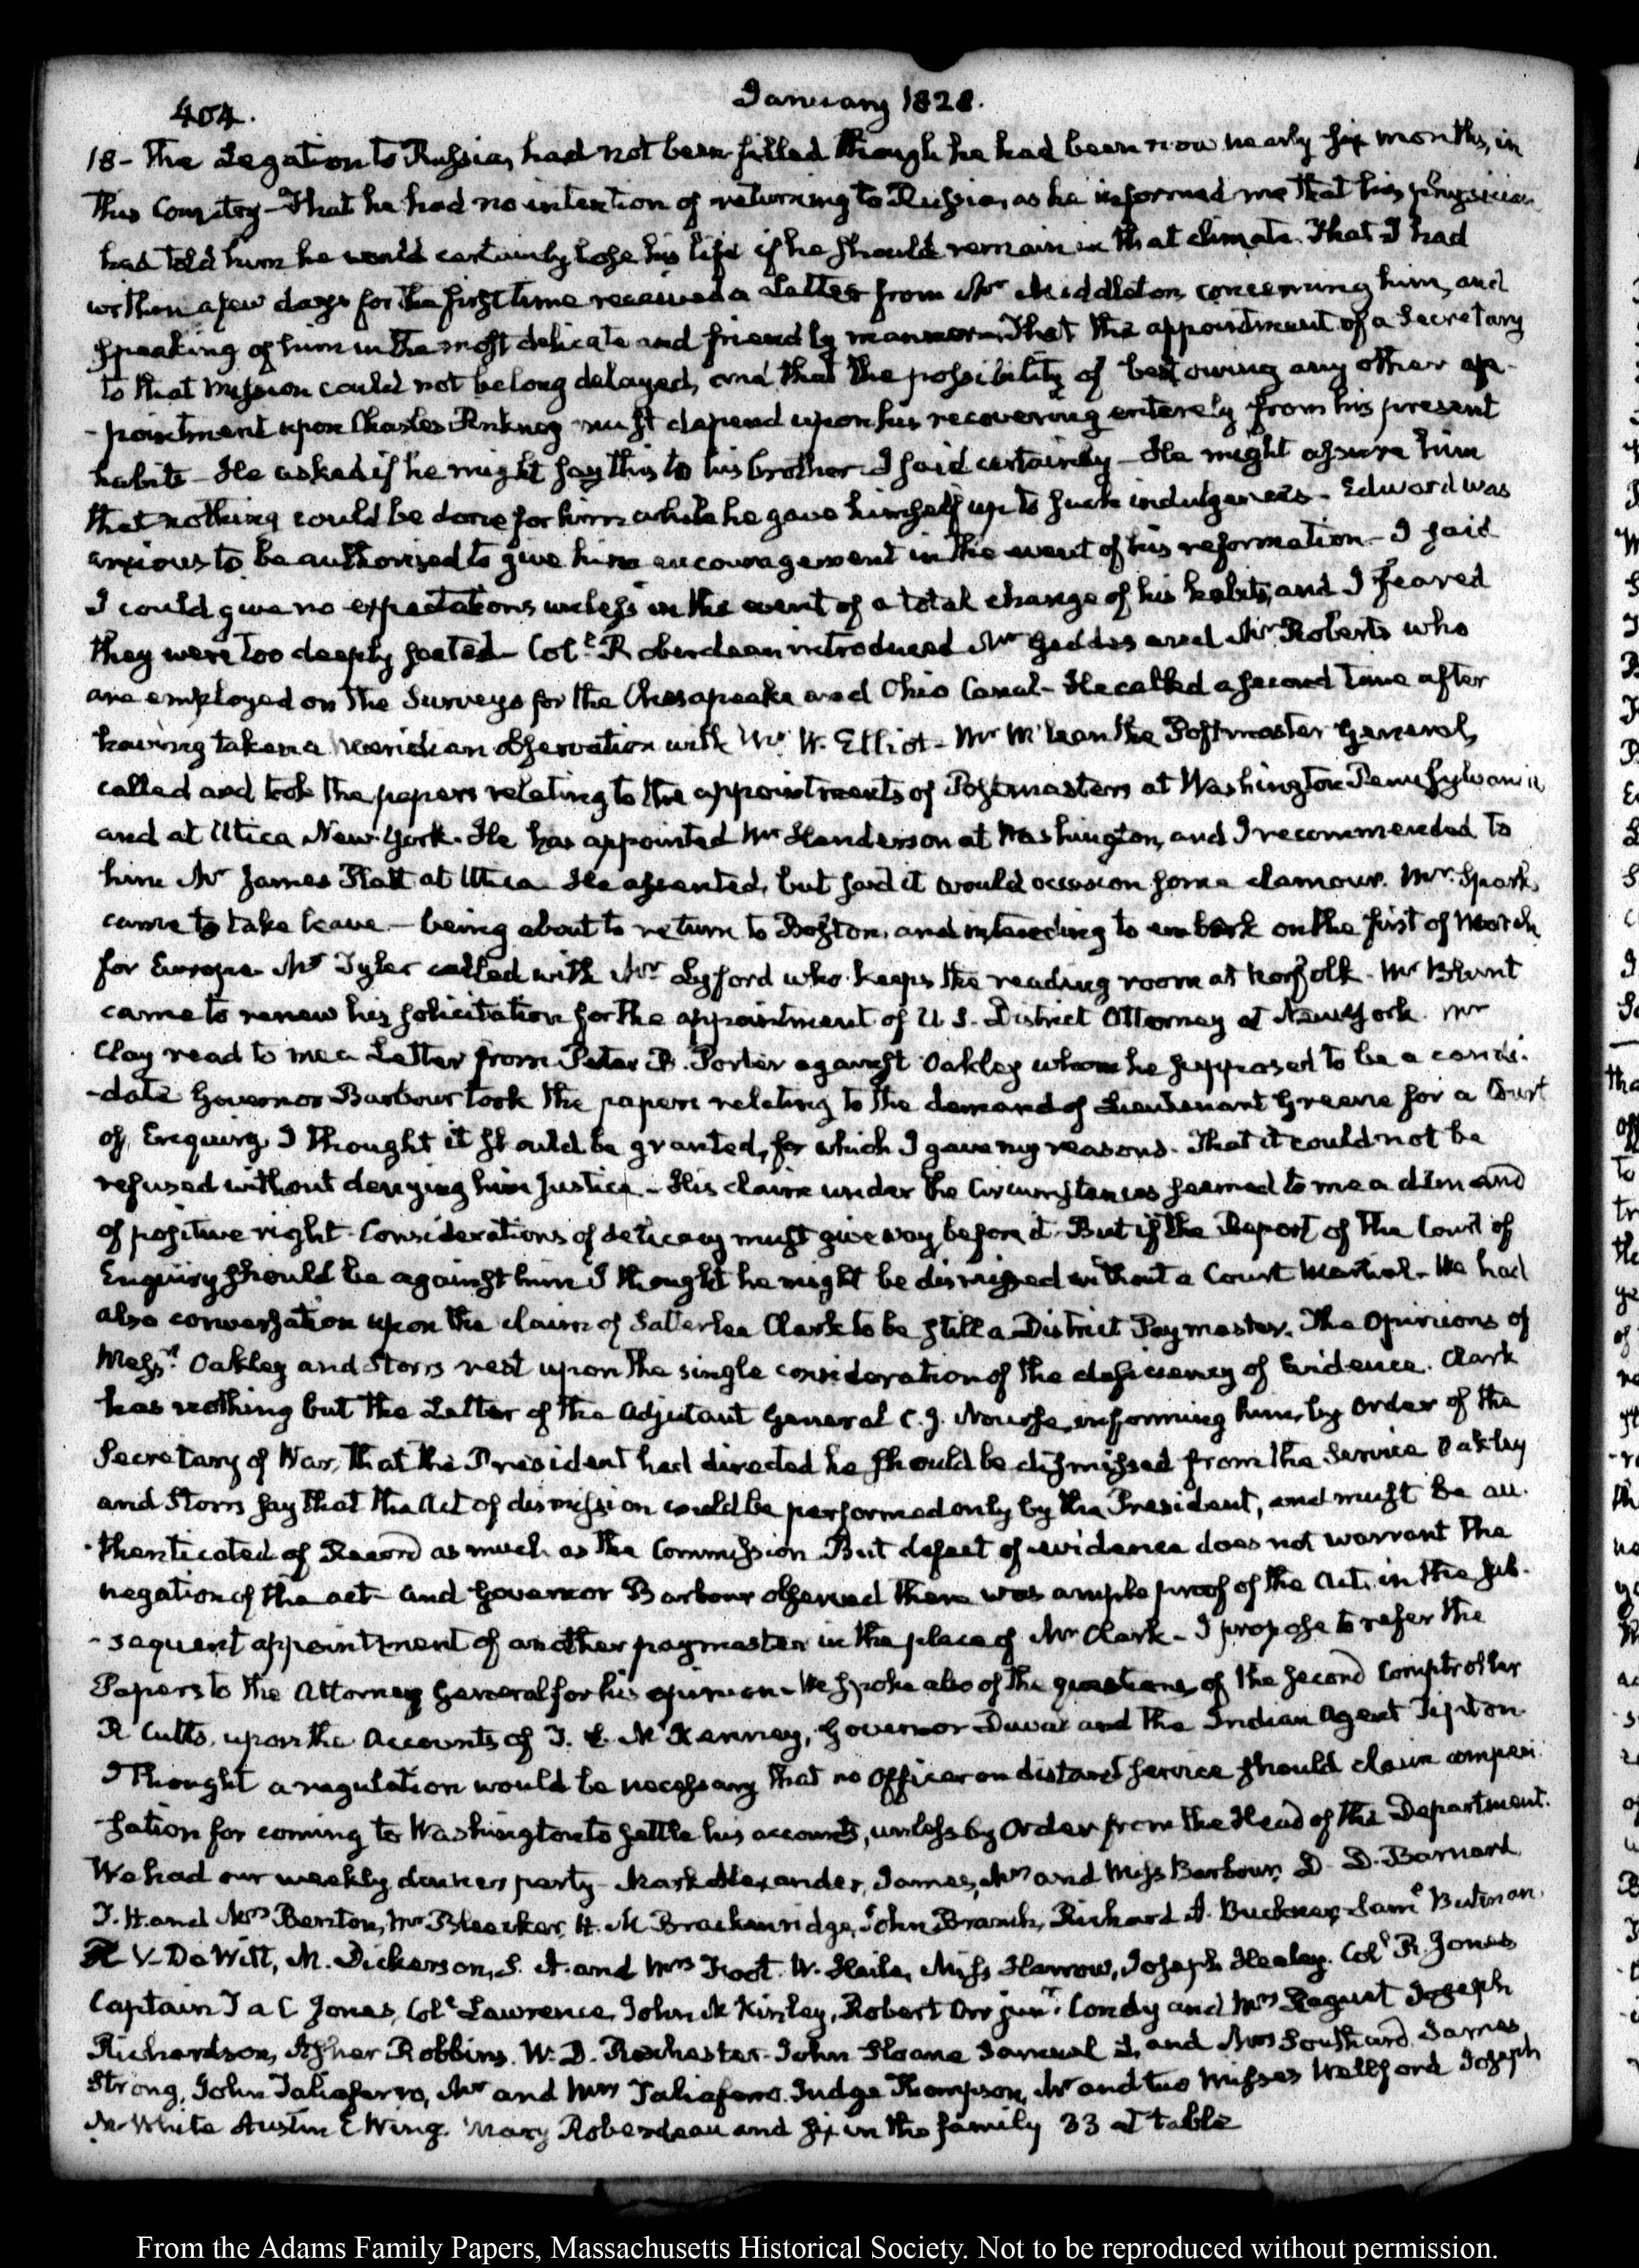 404.
January 1828.
18- The Legation to Russia, had not been filled though he had been now nearly six months, in
this Country- That he had no intention of returning to Russia, as he informed me that his physician
had told him he would certainly lose his life if he should remain in that climate. That I had
within a few days for the first time received a Letter from Mr Middleton, concerning him, and
speaking of him in the most delicate and friendly manner- That the appointment of a Secretary
to that Mission could not be long delayed, and that the possibility of bestowing any other ap-
-pointment upon Charles Pinkney must depend upon his recovering entirely from his present
habits- He asked if he might say this to his brother- I said certainly- He might assure him
that nothing could be done for him while he gave himself up to such indulgences- Edward was
anxious to be authorized to give him encouragement in the event of his reformation- I said
I could give no expectations unless in the event of a total change of his habits, and I feared
they were too deeply seated- Colo. Roberdeau introduced Mr Geddes and Mr Roberts who
are employed on the Surveys for the Chesapeake and Ohio Canal- He called a second time after
having taken a meridian observation with Mr W. Elliot- Mr McLean the Postmaster General,
called and took the papers relating to the appointments of Postmasters at Washington Pennsylvania
and at Utica New-York. He has appointed Mr Henderson at Washington, and I recommended to
him Mr James Platt at Utica- He assented, but said it would occasion some clamour. Mr. Sparks
came to take leave- being about to return to Boston, and intending to embark on the first of March
for Europe- Mr Tyler called with Mr Lyford who keeps the reading room at Norfolk- Mr Blunt
came to renew his solicitation for the appointment of U.S. District Attorney at New York. Mr
Clay read to me a Letter from Peter B. Porter against Oakley whom he supposed to be a candi-
-date Governor Barbour took the papers relating to the demand of Lieutenant Greene for a Court
of Enquiry. I thought it should be granted, for which I gave my reasons. That it could not be
refused without denying him justice- His claim under the Circumstances seemed to me a demand
of positive right- Considerations of delicacy must give way before it- But if the Report of the Court of
Enquiry should be against him I thought he might be dismissed without a Court Martial- We had
also conversation upon the claim of Satterlee Clark to be still a District Paymaster. The Opinions of
Messrs. Oakley and Storrs rest upon the single consideration of the deficiency of Evidence. Clark
has nothing but the Letter of the Adjutant General C. J. Nourse, informing him, by order of the
Secretary of War, that the President had directed he should be dismissed from the Service Oakley
and Storrs say that the act of dismission could be performed only by the President, and must be au-
-thenticated of Record as much as the Commission- But defect of evidence does not warrant the
negation of the act- and Governor Barbour observed there was ample proof of the act, in the sub-
-sequent appointment of another paymaster in the place of Mr Clark- I propose to refer the
Papers to the Attorney General for his opinion- We spoke also of the questions of the second Comptroller
R Cutts, upon the Accounts of T. L. McKenney, Governor Duval and the Indian Agent Tipton-
I thought a regulation would be necessary that no officer on distant service should claim compen-
-sation for coming to Washington to settle his accounts, unless by Order from the Head of the Department.
We had our weekly dinner party- Mark Alexander, James, Mrs and Miss Barbour, D. D. Barnard,
T. H. and Mrs Benton, Mr Bleecker, H. M Brackenridge, John Branch, Richard A. Buckner, Saml Butman,
R V- De Witt, M. Dickerson, S. A. and Mrs Foot. W. Haile, Miss Harrow, Joseph Healey. Colo R. Jones
Captain J a C Jones, Colo Lawrence, John McKinley, Robert Orr junr. Condy and Mrs Raguet Joseph
Richardson, Asher Robbins. W. B. Rochester- John Sloane Samuel L. and Mrs Southard James
Strong, John Taliaferro, Mr and Mrs Taliaferro. Judge Thompson, Mr and two Misses Wellford Joseph
M White Austin E Wing. Mary Roberdeau and six in the family 33 at table
From the Adams Family Papers, Massachusetts Historical Society. Not to be reproduced without permission.